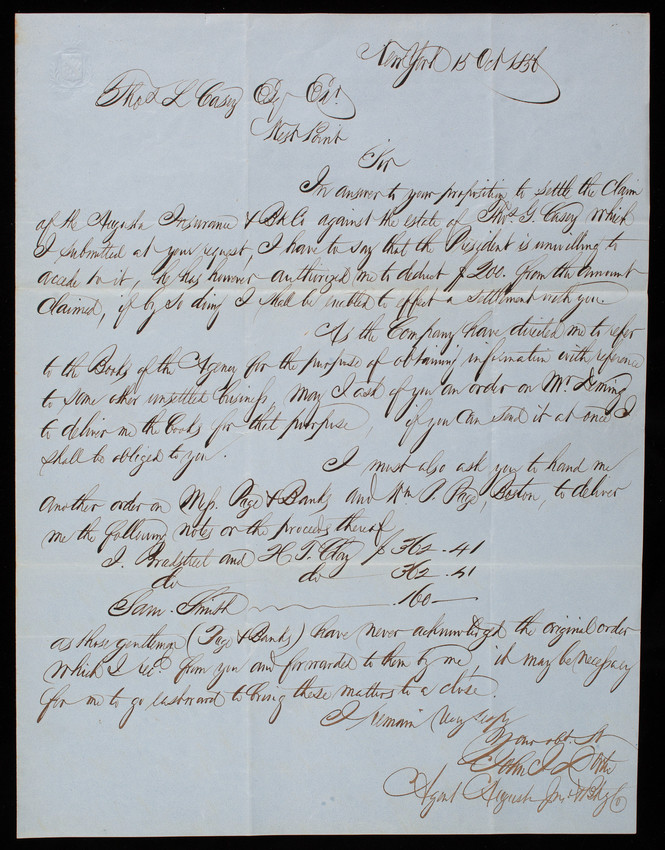 New York 15 Oct 1856
Thos L Casey Esq Exr
West Point
Sir
In answer to your proposition to settle the Claim
of the Augusta Insurance & Bk Co against the estate of Thos G. Casey which
I submitted at your request, I have to say that the President is unwilling to
accede to it, he has however authorized me to deduct $200. from the amount
Claimed, if by so doing I shall be enabled to effect a settlement with you.
As the Company have directed me to refer
to the Books of the Agency for the purpose of obtaining information with reference
to some other unsettled business, may I ask of you an order on Mr. Deming
to deliver me the books for that purpose, if you can send it at once I
shall be obliged to you.
I must also ask you to hand me
another order on Mess. Page & Banks and Wm P. Page, Boston, to deliver
me the following notes or the proceeds thereof
J. Bradstreet and H T. Clay $362.41
do do 362.41
Sam. Smith 160—
as those gentlemen (Page & Banks) have never acknowledged the original order
which I recd. from you and forwarded to them by me, it may be necessary
for me to go eastward to bring these matters to a close.
I Remain Very Respy
Your obt. St
John J
Agent Augusta Ins & Bkg Co